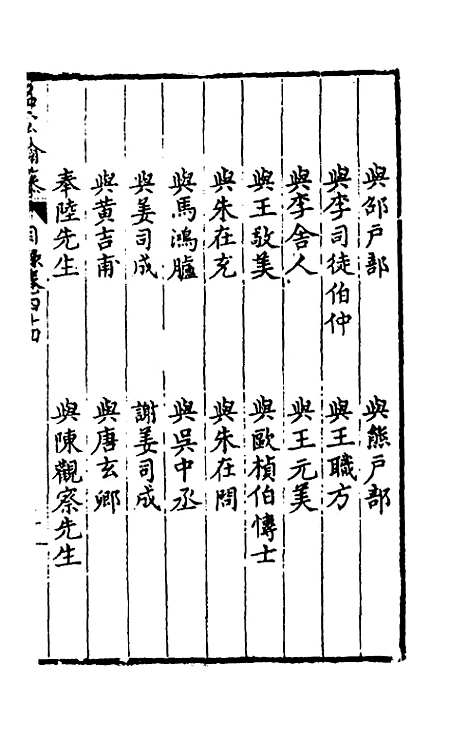 與邵戶部　與熊戶部
與李司徒伯仲　與王職方
與李舍人　與王元美
與王敬美　與歐楨伯博士
與朱在充　與朱在問
與馬鴻臚　與吳中丞
與姜司成　謝姜司成
與黃吉甫　與唐玄卿
奉陸先生　與陳觀察先生
目錄卷四十四